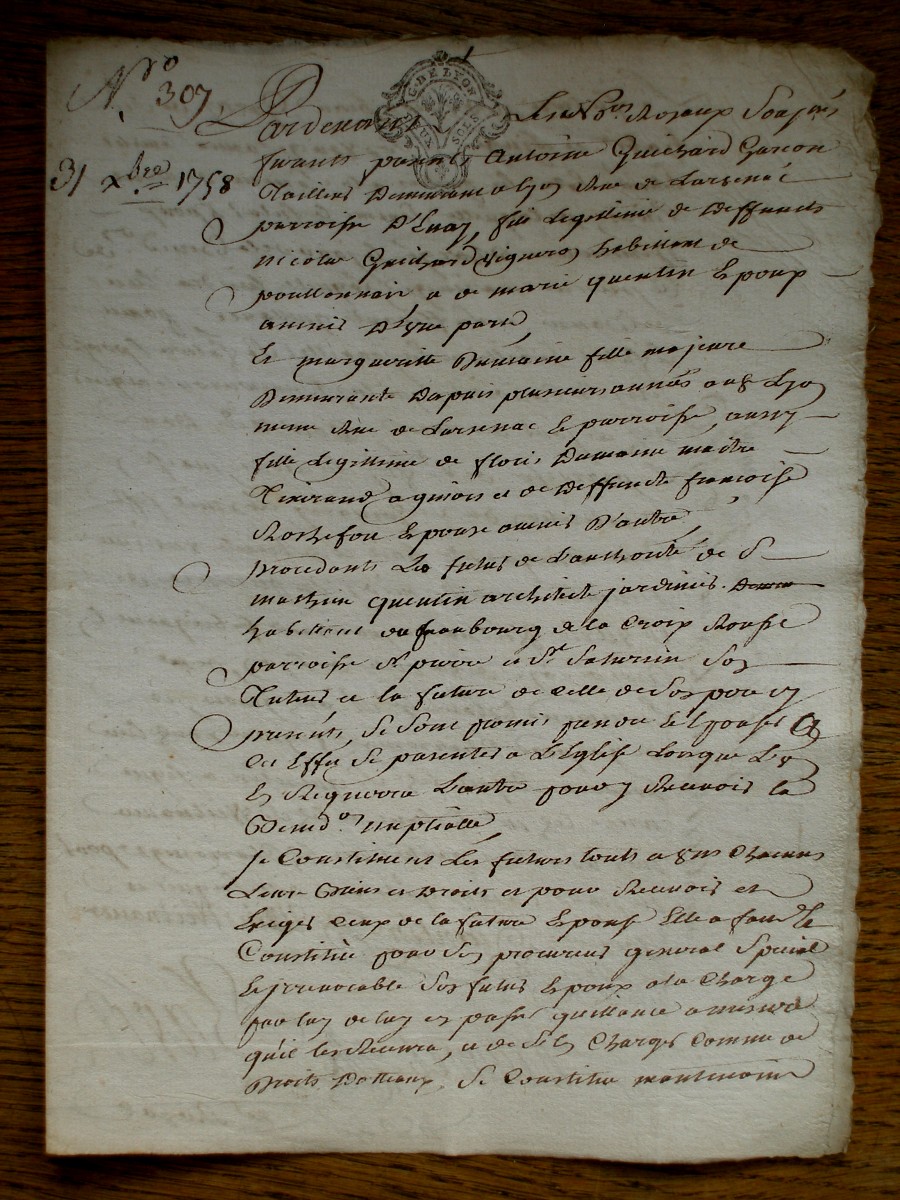 Nro 307
31 xbre 1758
G. DE LYON
DEUX SOLS
Pardevant Les No.res Royaux Soussignés
furent présents Antoine Guichard Garcon
Tailleur Demeurant a Lyon Rue de Larsenac
parroisse D'Enay, fils Legitime de Deffuncts
Nicolas Guichard Vigneron habittant de
et de marie quentin Epoux
d'une part,
Et margueritte Dumaine fille majeure
Demeurante Depuis plusieurs années aud. Lyon
meme Rue de Larsenac et parroisse, aussy
fille Legitime de floris Dumaine maitre
Tisserand a et de Deffuncte francoise
Rochefort Epoux D'autre,
procedants Le futur de Lauthorité de Sr
mathieu quentin architecte jardinier
habittant au fauxbourg de la Croix Rousse
parroisse St pierre et St Saturnin Son
et la future de celle de Son pere cy
présents, Se Sont promis prendre et Epouser &
Cet Effet Se presenter a L'Eglise Lorsque L'un
En Requerra L'autre pour y Recevoir la
Bened.on nuptialle,
Se Constituent Les futurs touts et uns Chacuns
Leurs Biens et Droits et pour Recevoir et
Exiger Ceux de la future Epouse Elle a fait et
Constitué pour Son procureur general Special
Et irrevocable Son futur Epoux a la Charge
par luy de luy en passer quittance a mesure
qu'il les Recevra, et de Comme de
Droits Dotteaux. Se Constitue